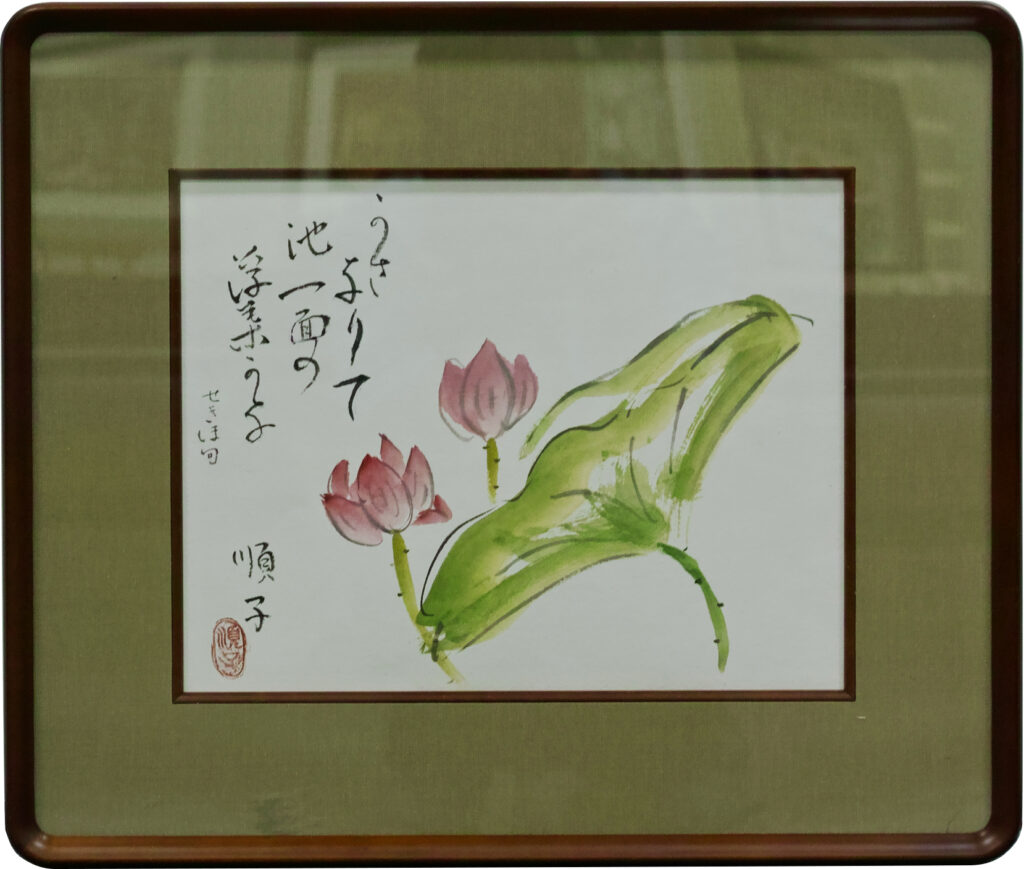 かさ
なりて
池一面の
浮葉かな
せきほ句
順子
順子